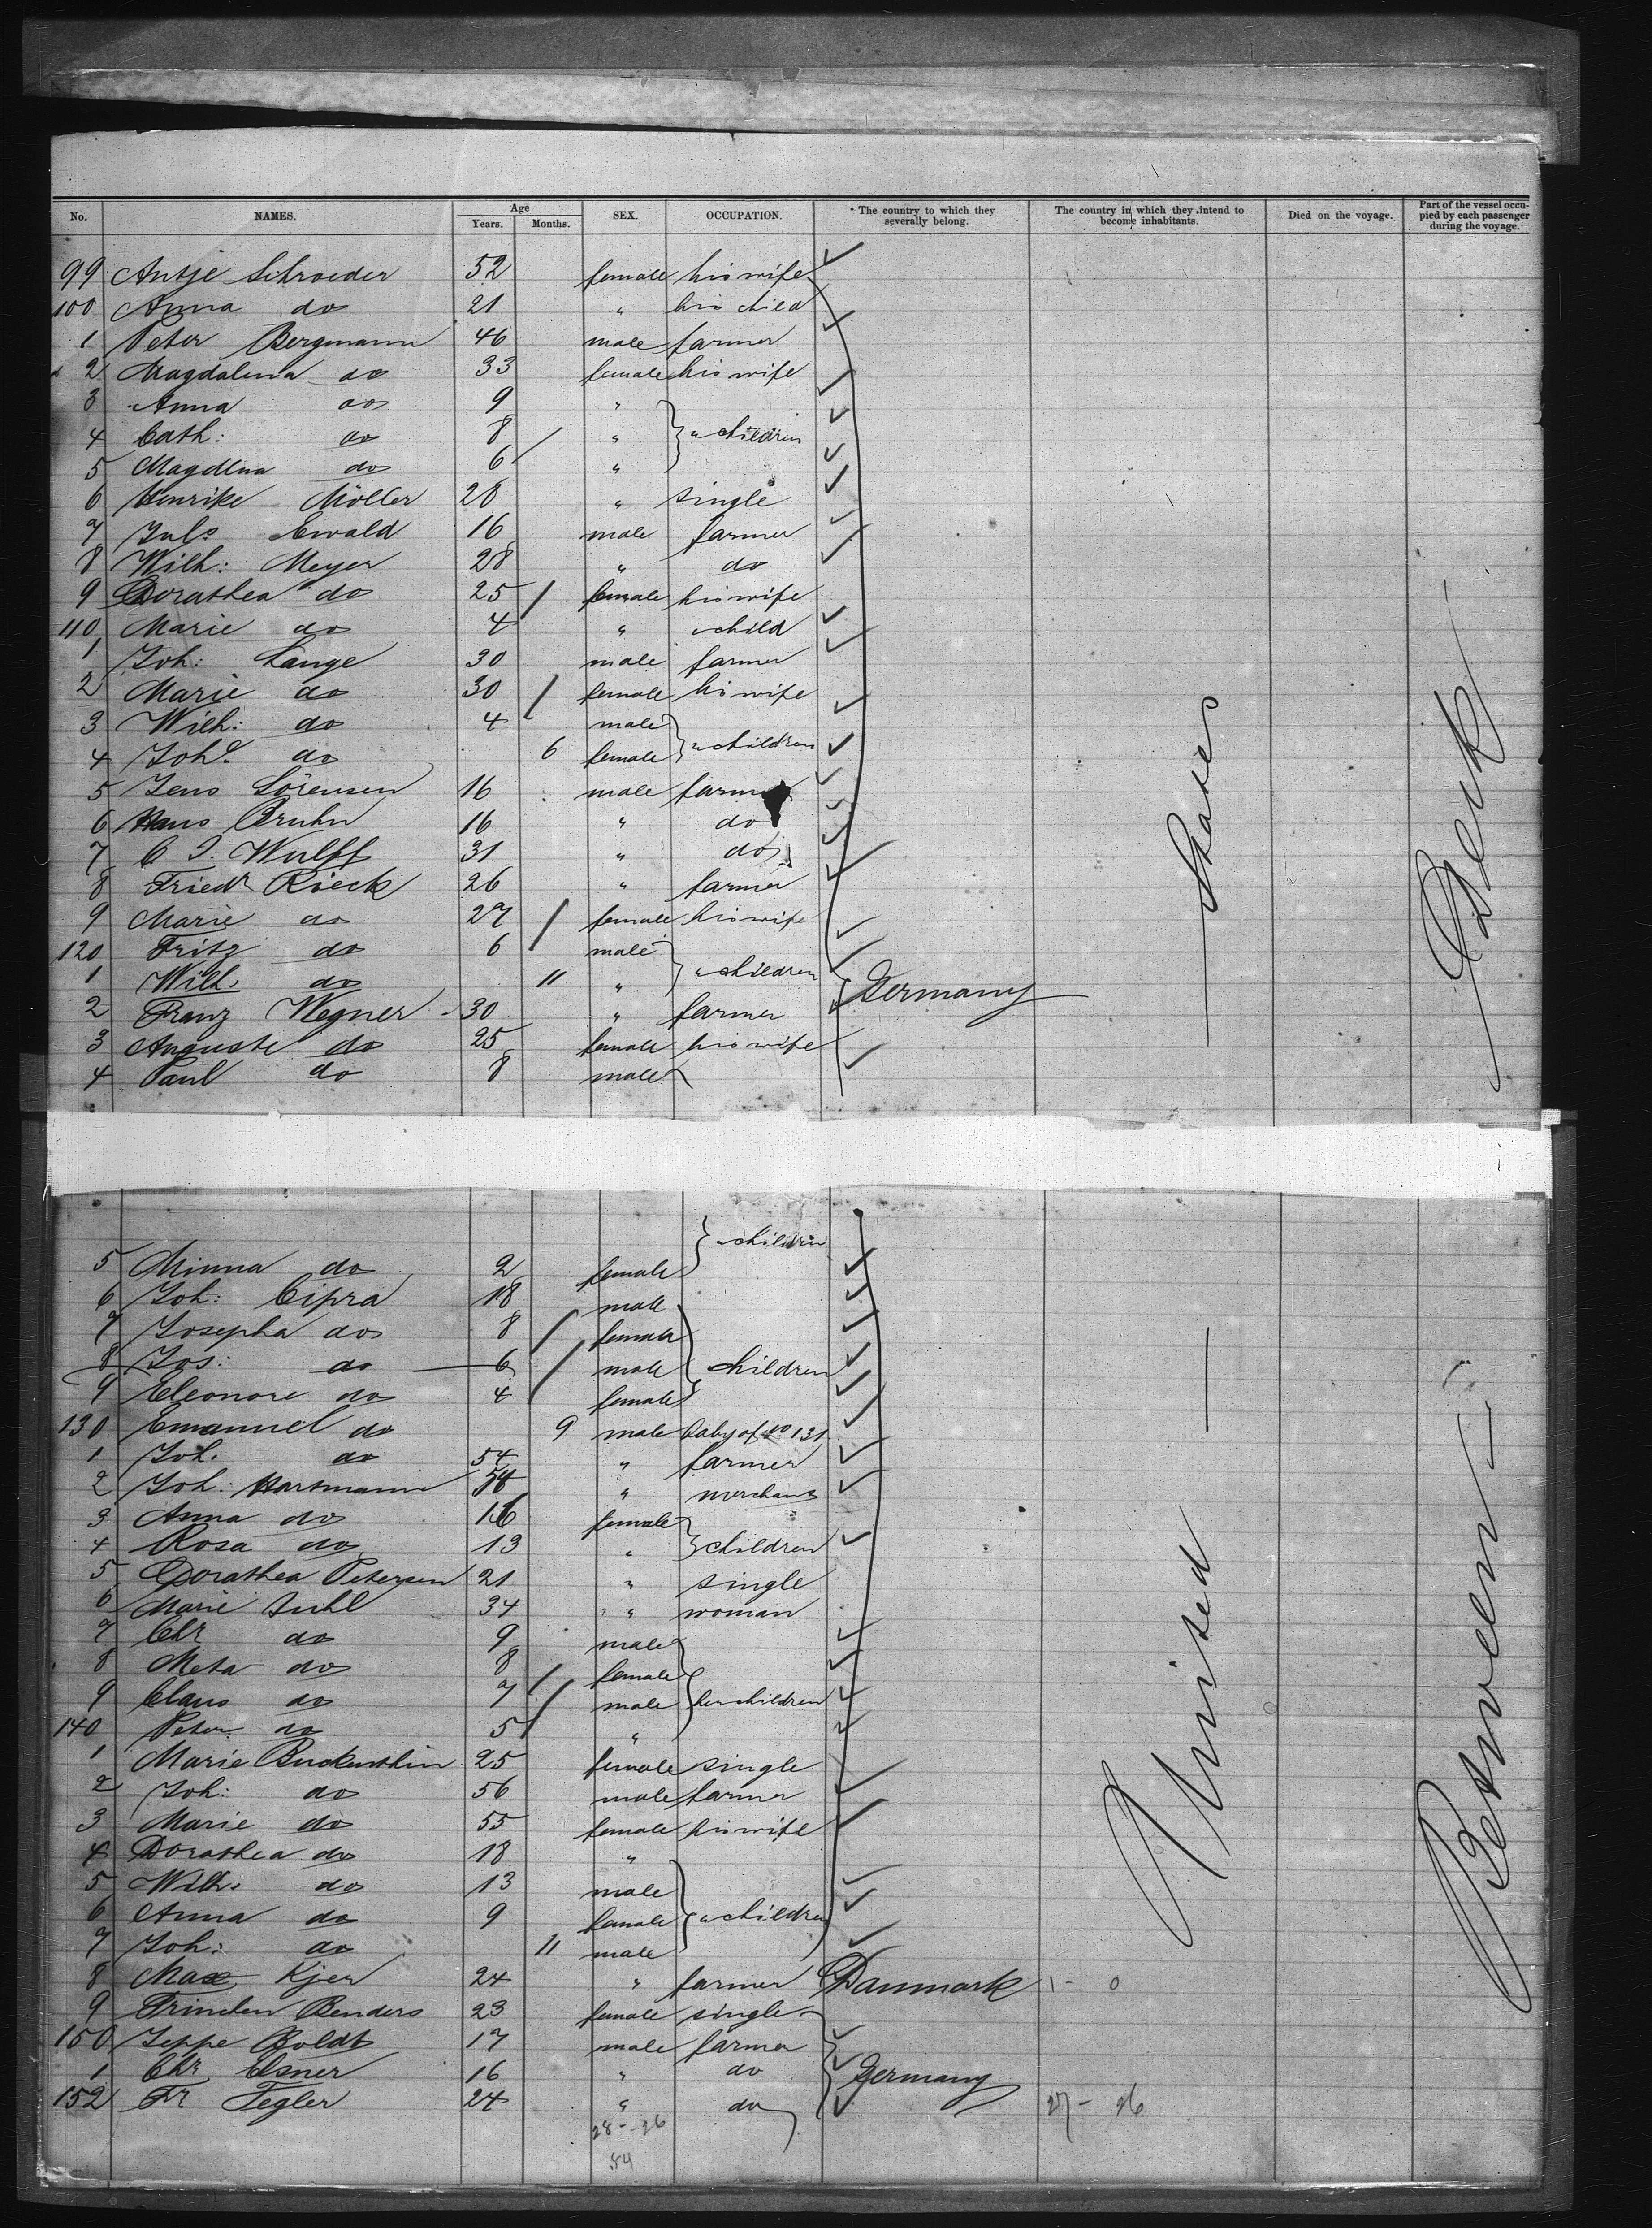 No. NAMES. Age Years. Months. SEX. OCCUPATION. * The country to which they severally belong. The country in which they intend to become inhabitants. Died on the voyage. Part of the vessel occupied by each passenger during the voyage.
99 Antje Schroeder 52 female his wife
100 Anna do 21 " his child
1 Peter Bergmann 46 male farmer
2 Magdalena do 33 female his wife
3 Anna do 9 "
4 Cath: do 8 " " children
5 Magdlna do 6 "
6 Henrike Möller 28 " single
7 Juls Ewald 16 male farmer
8 Wilh: Meyer 28 " do
9 Dorathea do 25 female his wife
110 Marie do 4 " " child
1 Joh: Lange 30 male farmer
2 Marie do 30 female his wife
3 Wilh: do 4 male
4 Johe do 6 female " children
5 Jens Sörensen 16 male farmer
6 Hans Bruhn 16 " do
7 C J. Wulff 31 " do
8 Friedr Rieck 26 " farmer
9 Marie do 27 female his wife
120 Fritz do 6 male
1 Wilh. do 11 " " children
2 Franz Wegner 30 " farmer Germany
3 Auguste do 25 female his wife
4 Paul do 8 male
" children
5 Minna do 2 female
6 Joh: Cipra 18 male
7 Josepha do 8 female
8 Jos: do 6 male children
9 Eleonore do 4 female
130 Emanuel do 9 male baby of No 131
1 Joh. do 54 " farmer
2 Joh: Hartmann 54 " merchant
3 Anna do 16 female
4 Rosa do 13 " children
5 Dorathea Petersen 21 " single
6 Marie Juhl 34 " woman
7 Chr do 9 male
8 Meta do 8 female
9 Claus do 7 male her children
140 Peter do 5 "
1 Marie Buckenthin 25 female single
2 Joh: do 56 male farmer
3 Marie do 55 female his wife
4 Dorathea do 18 "
5 Wilh. do 13 male
6 Anna do 9 female " children
7 Joh: do 11 male
8 Max Kjer 24 " farmer Danmark 1 - 0
9 Trinchen Benders 23 female single
150 Jeppe Boldt 17 male farmer
1 Chr Esner 16 " do Germany
152 Fr Tegler 24 " do 27 - 26
28 - 26
54
United States
Between Deck